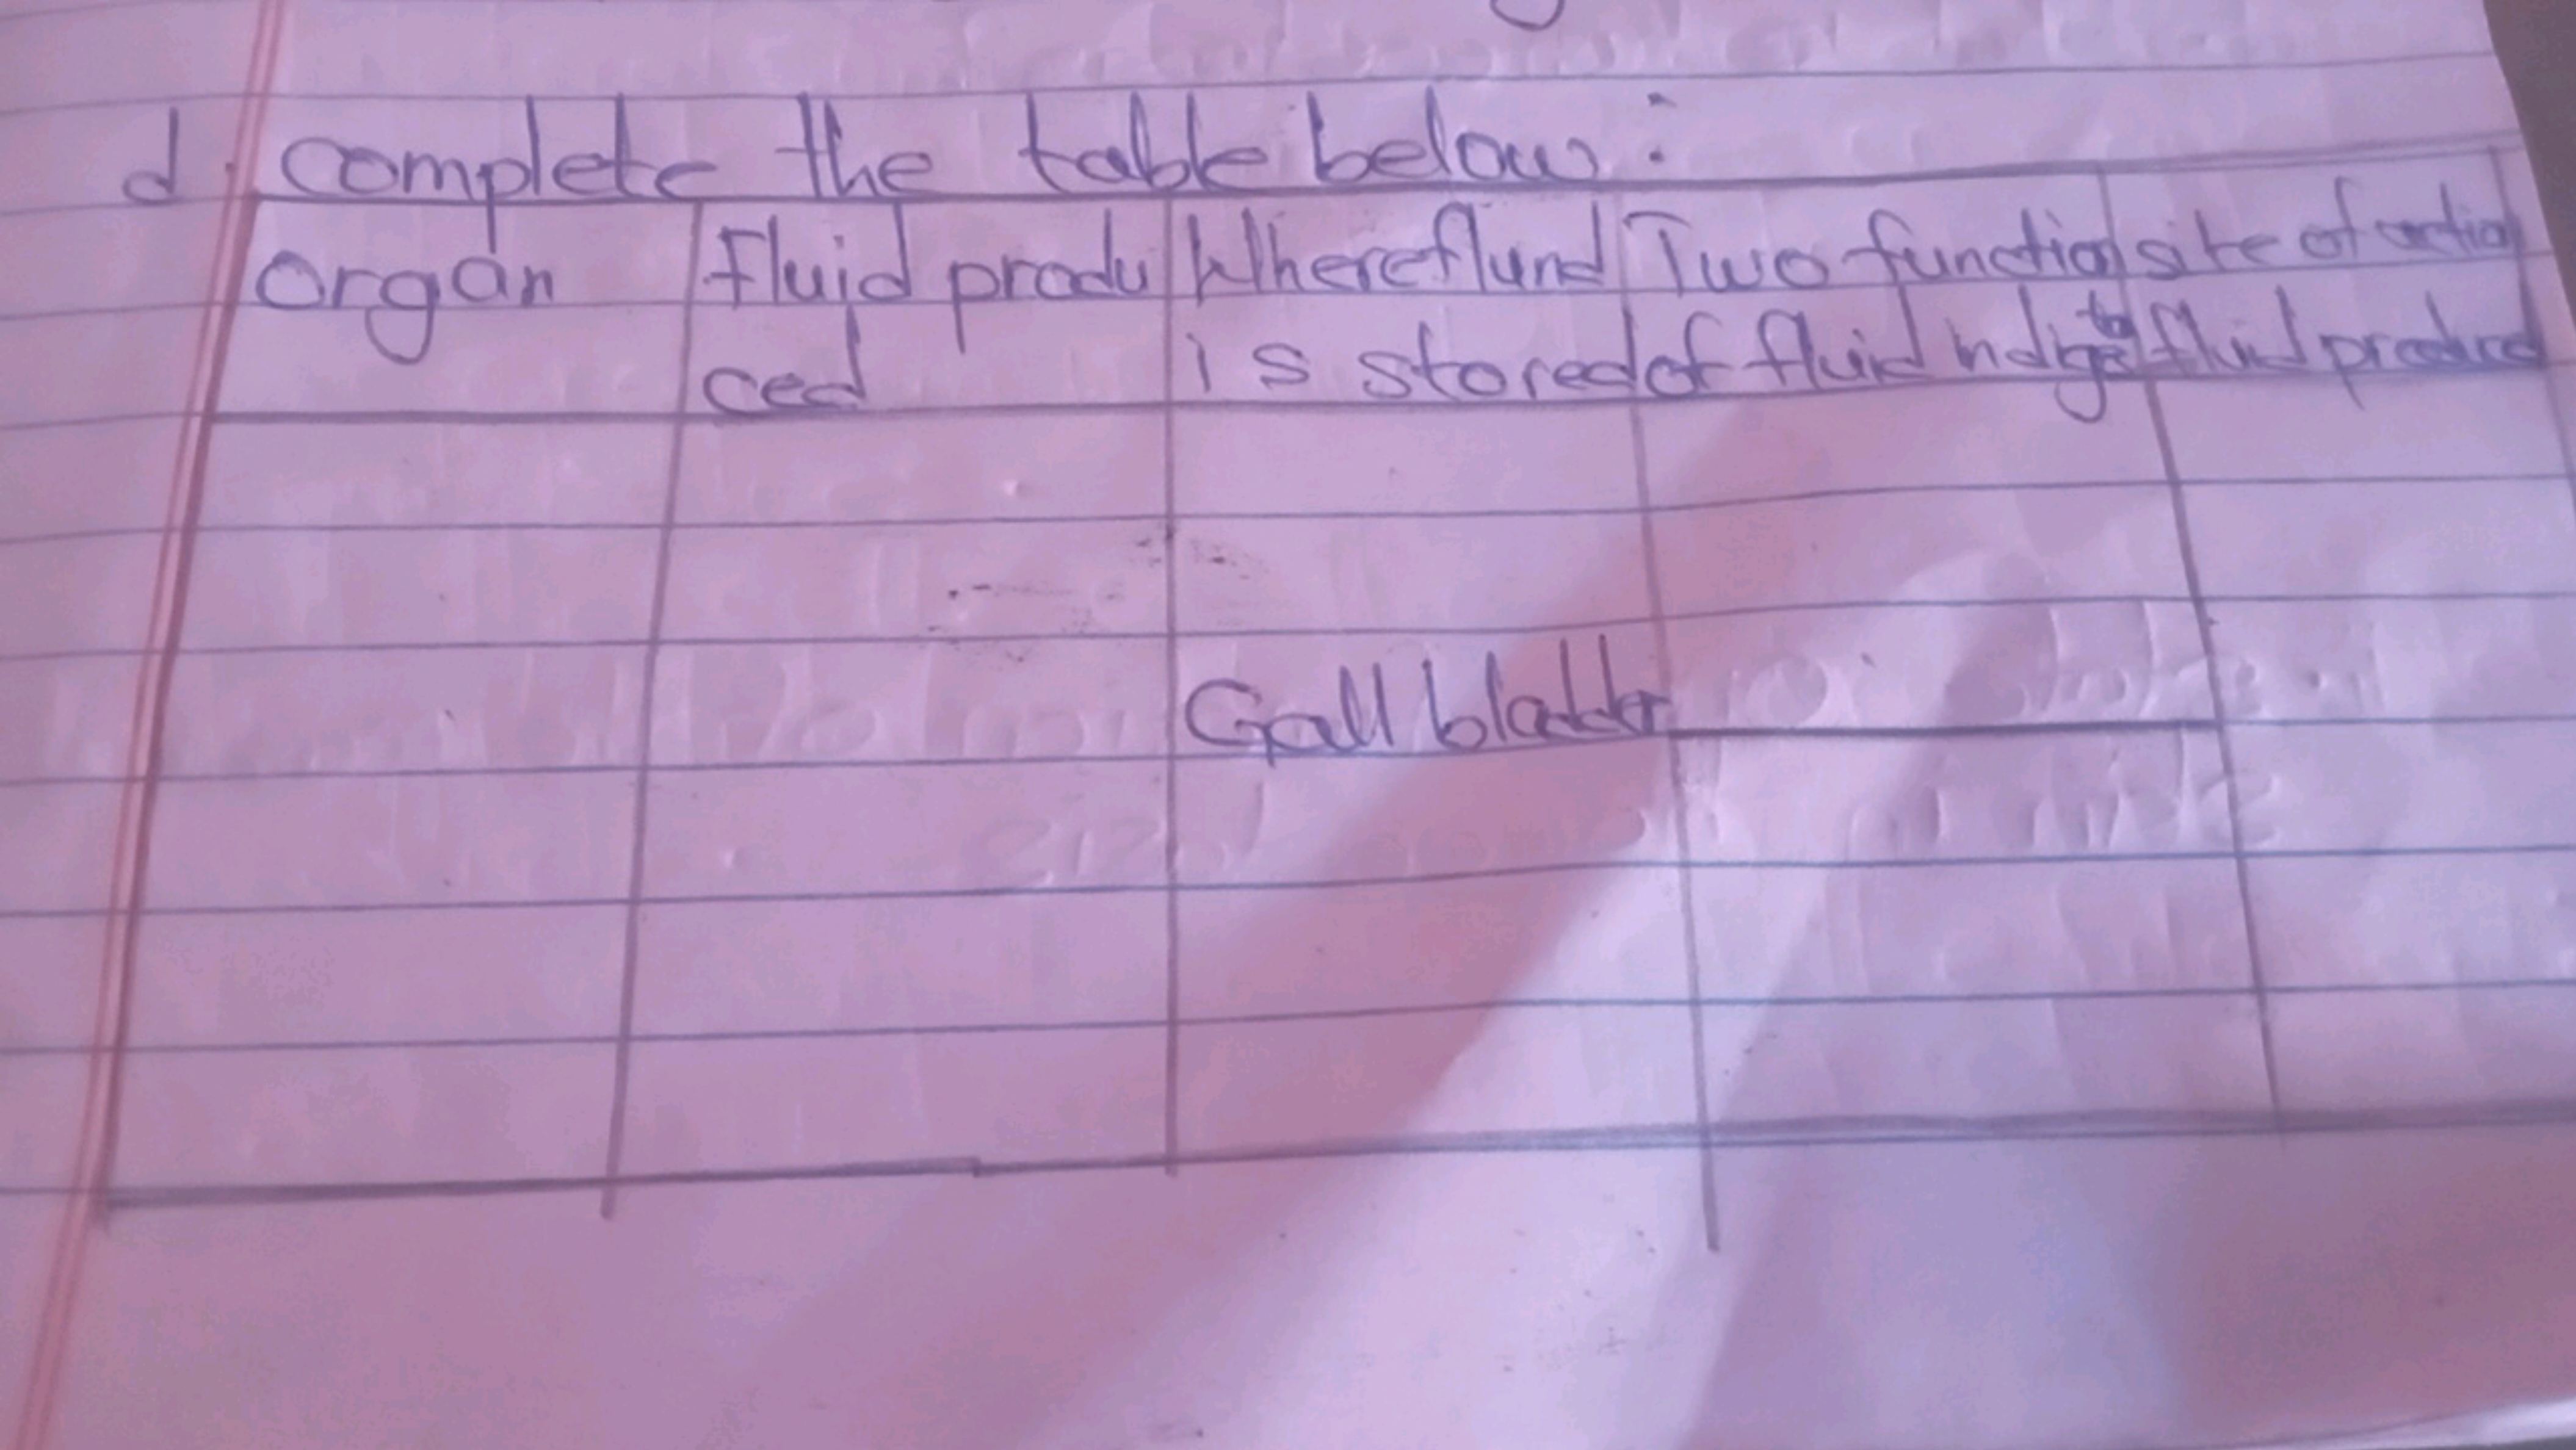 d. complete the table below:
organ | fluid produ | Where flund | Two function | site of action
ced | is stored | of fluid in digestio | fluid produced
Gall bladder